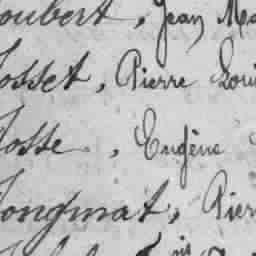 oubert, Jean Ma
Josset, Pierre Loui
Josse, Eugène
Jongmat, Pier